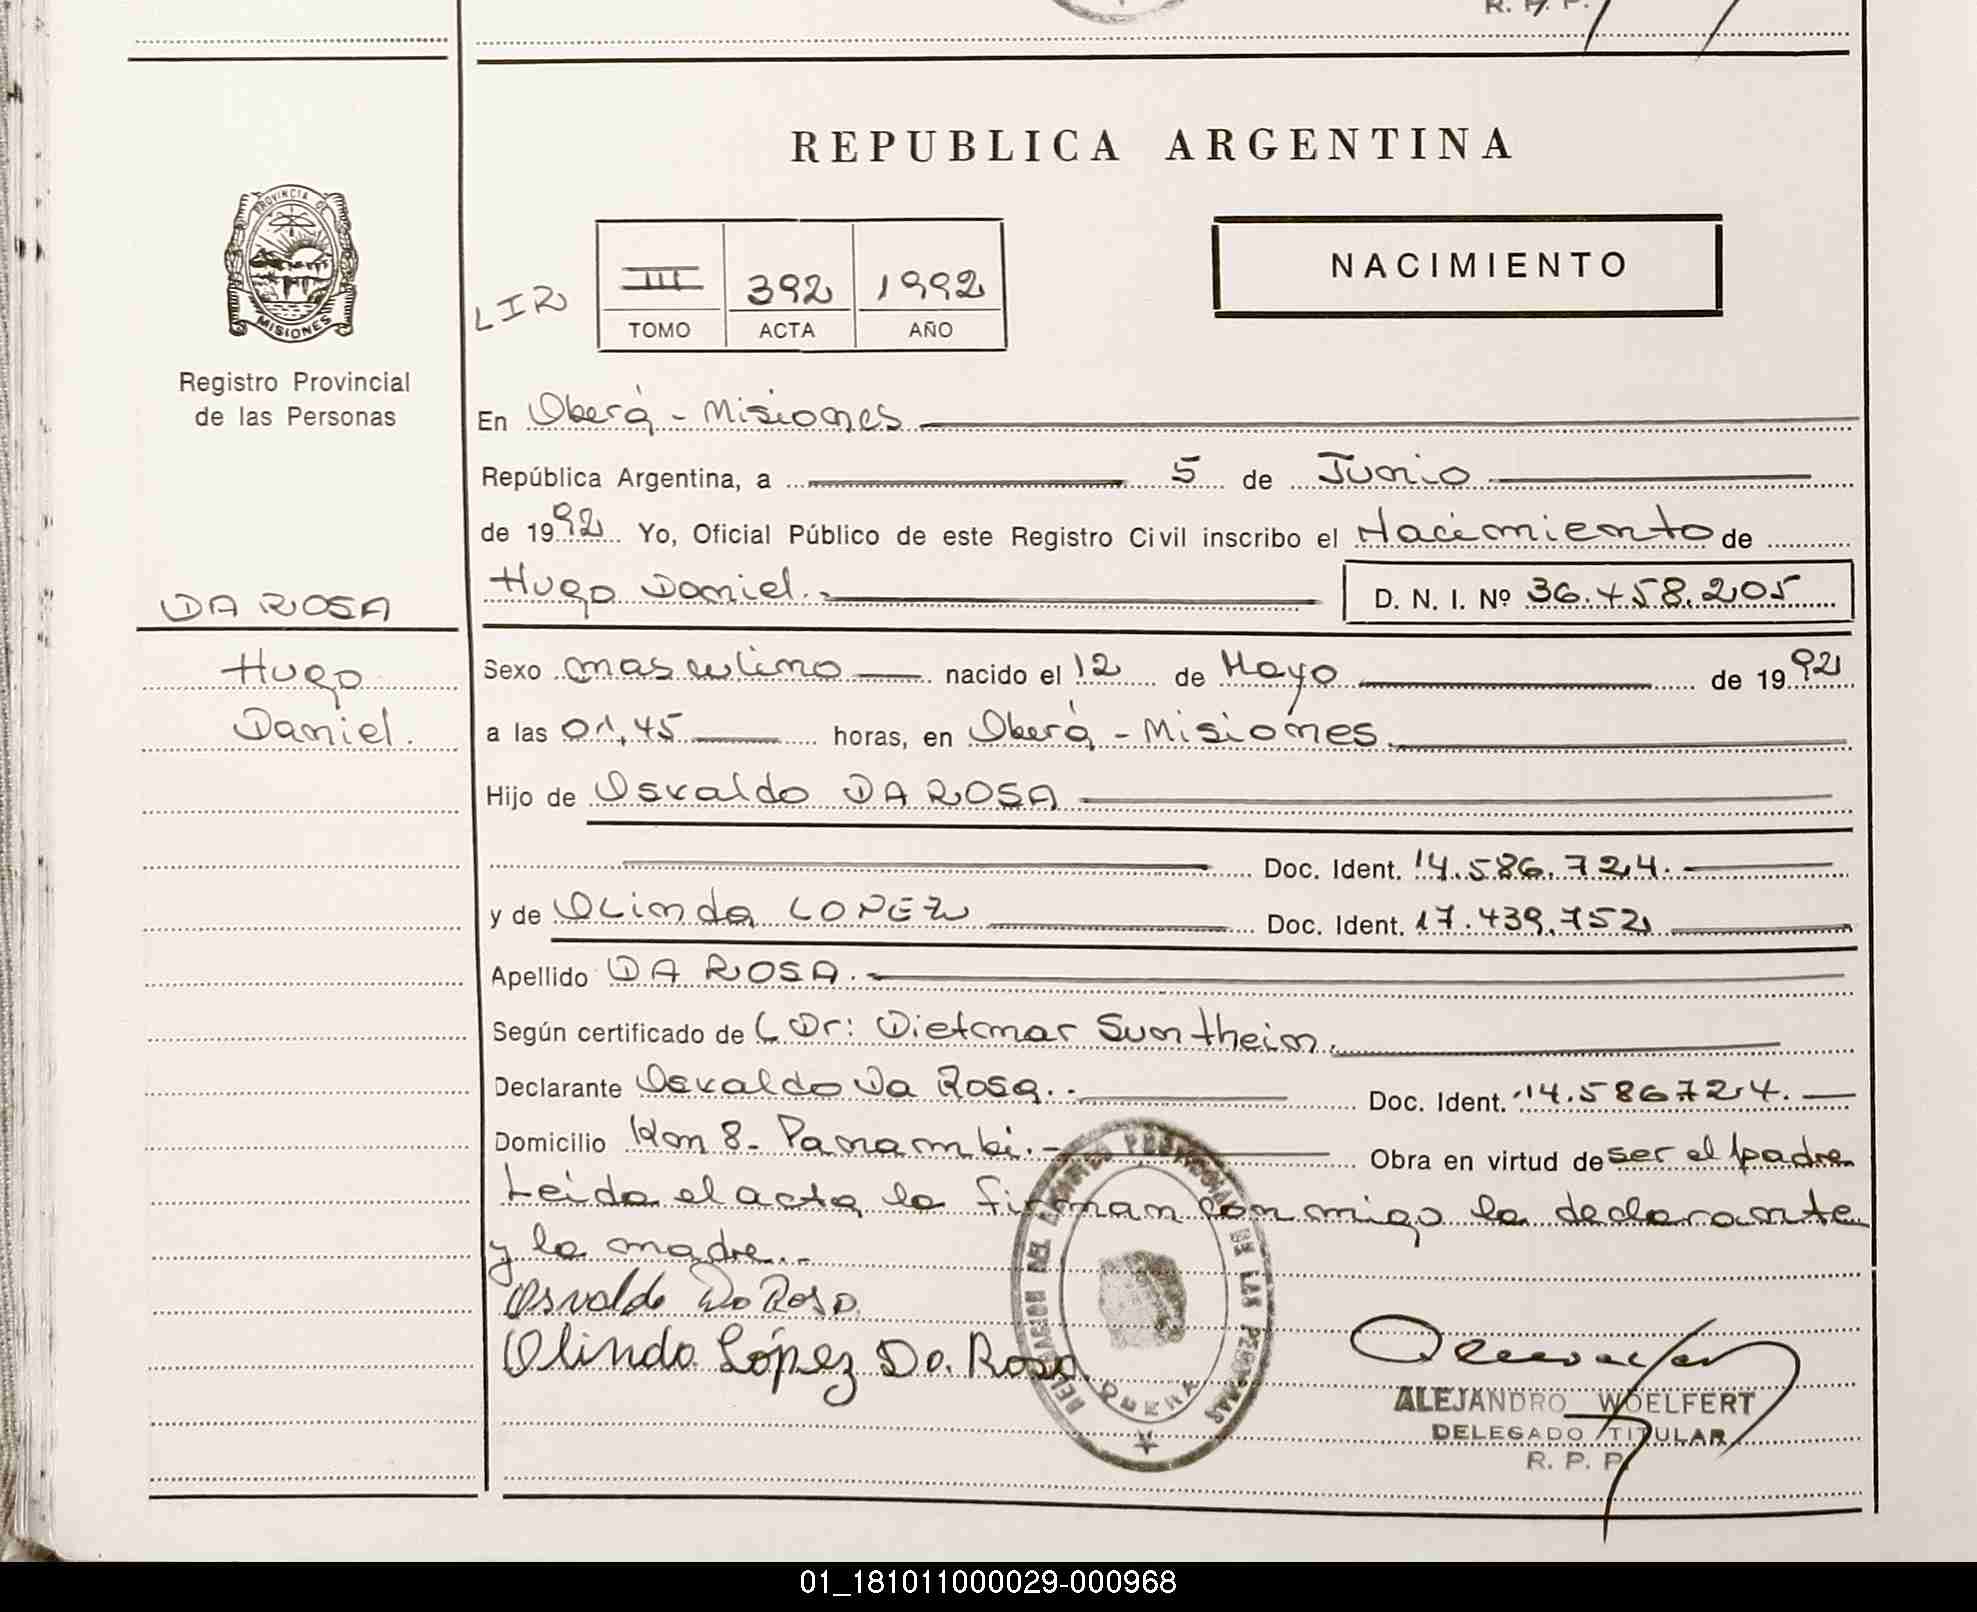 R. P. P.
REPUBLICA ARGENTINA
PROVINCIA DE
MISIONES
Registro Provincial
de las Personas
NACIMIENTO
LIR
III 392 1992
TOMO ACTA AÑO
En Oberá - Misiones
República Argentina, a 5 de Junio
de 1992 Yo, Oficial Público de este Registro Civil inscribo el Nacimiento de
Hugo Daniel.- D. N. I. Nº 36.458.205
DA ROSA
Hugo
Daniel.
Sexo masculino nacido el 12 de Mayo de 1992
a las 01,45 horas, en Oberá - Misiones
Hijo de Osvaldo DA ROSA
Doc. Ident. 14.586.724.
y de OLinda LOPEZ Doc. Ident. 17.439.752
Apellido DA ROSA.
Según certificado de Dr: Dietmar Suntheim.
Declarante Osvaldo Da Rosa.- Doc. Ident. 14.586724.
Domicilio Km 8- Panambi.- Obra en virtud de ser el padre
Leida el acta la firman conmigo la declarante
y la madre.-
Osvaldo Da Rosa
Olinda López Da Rosa
DELEGACION DEL REGISTRO PROVINCIAL DE LAS PERSONAS
OBERA
ALEJANDRO WOELFERT
DELEGADO TITULAR
R. P. P.
01_181011000029-000968